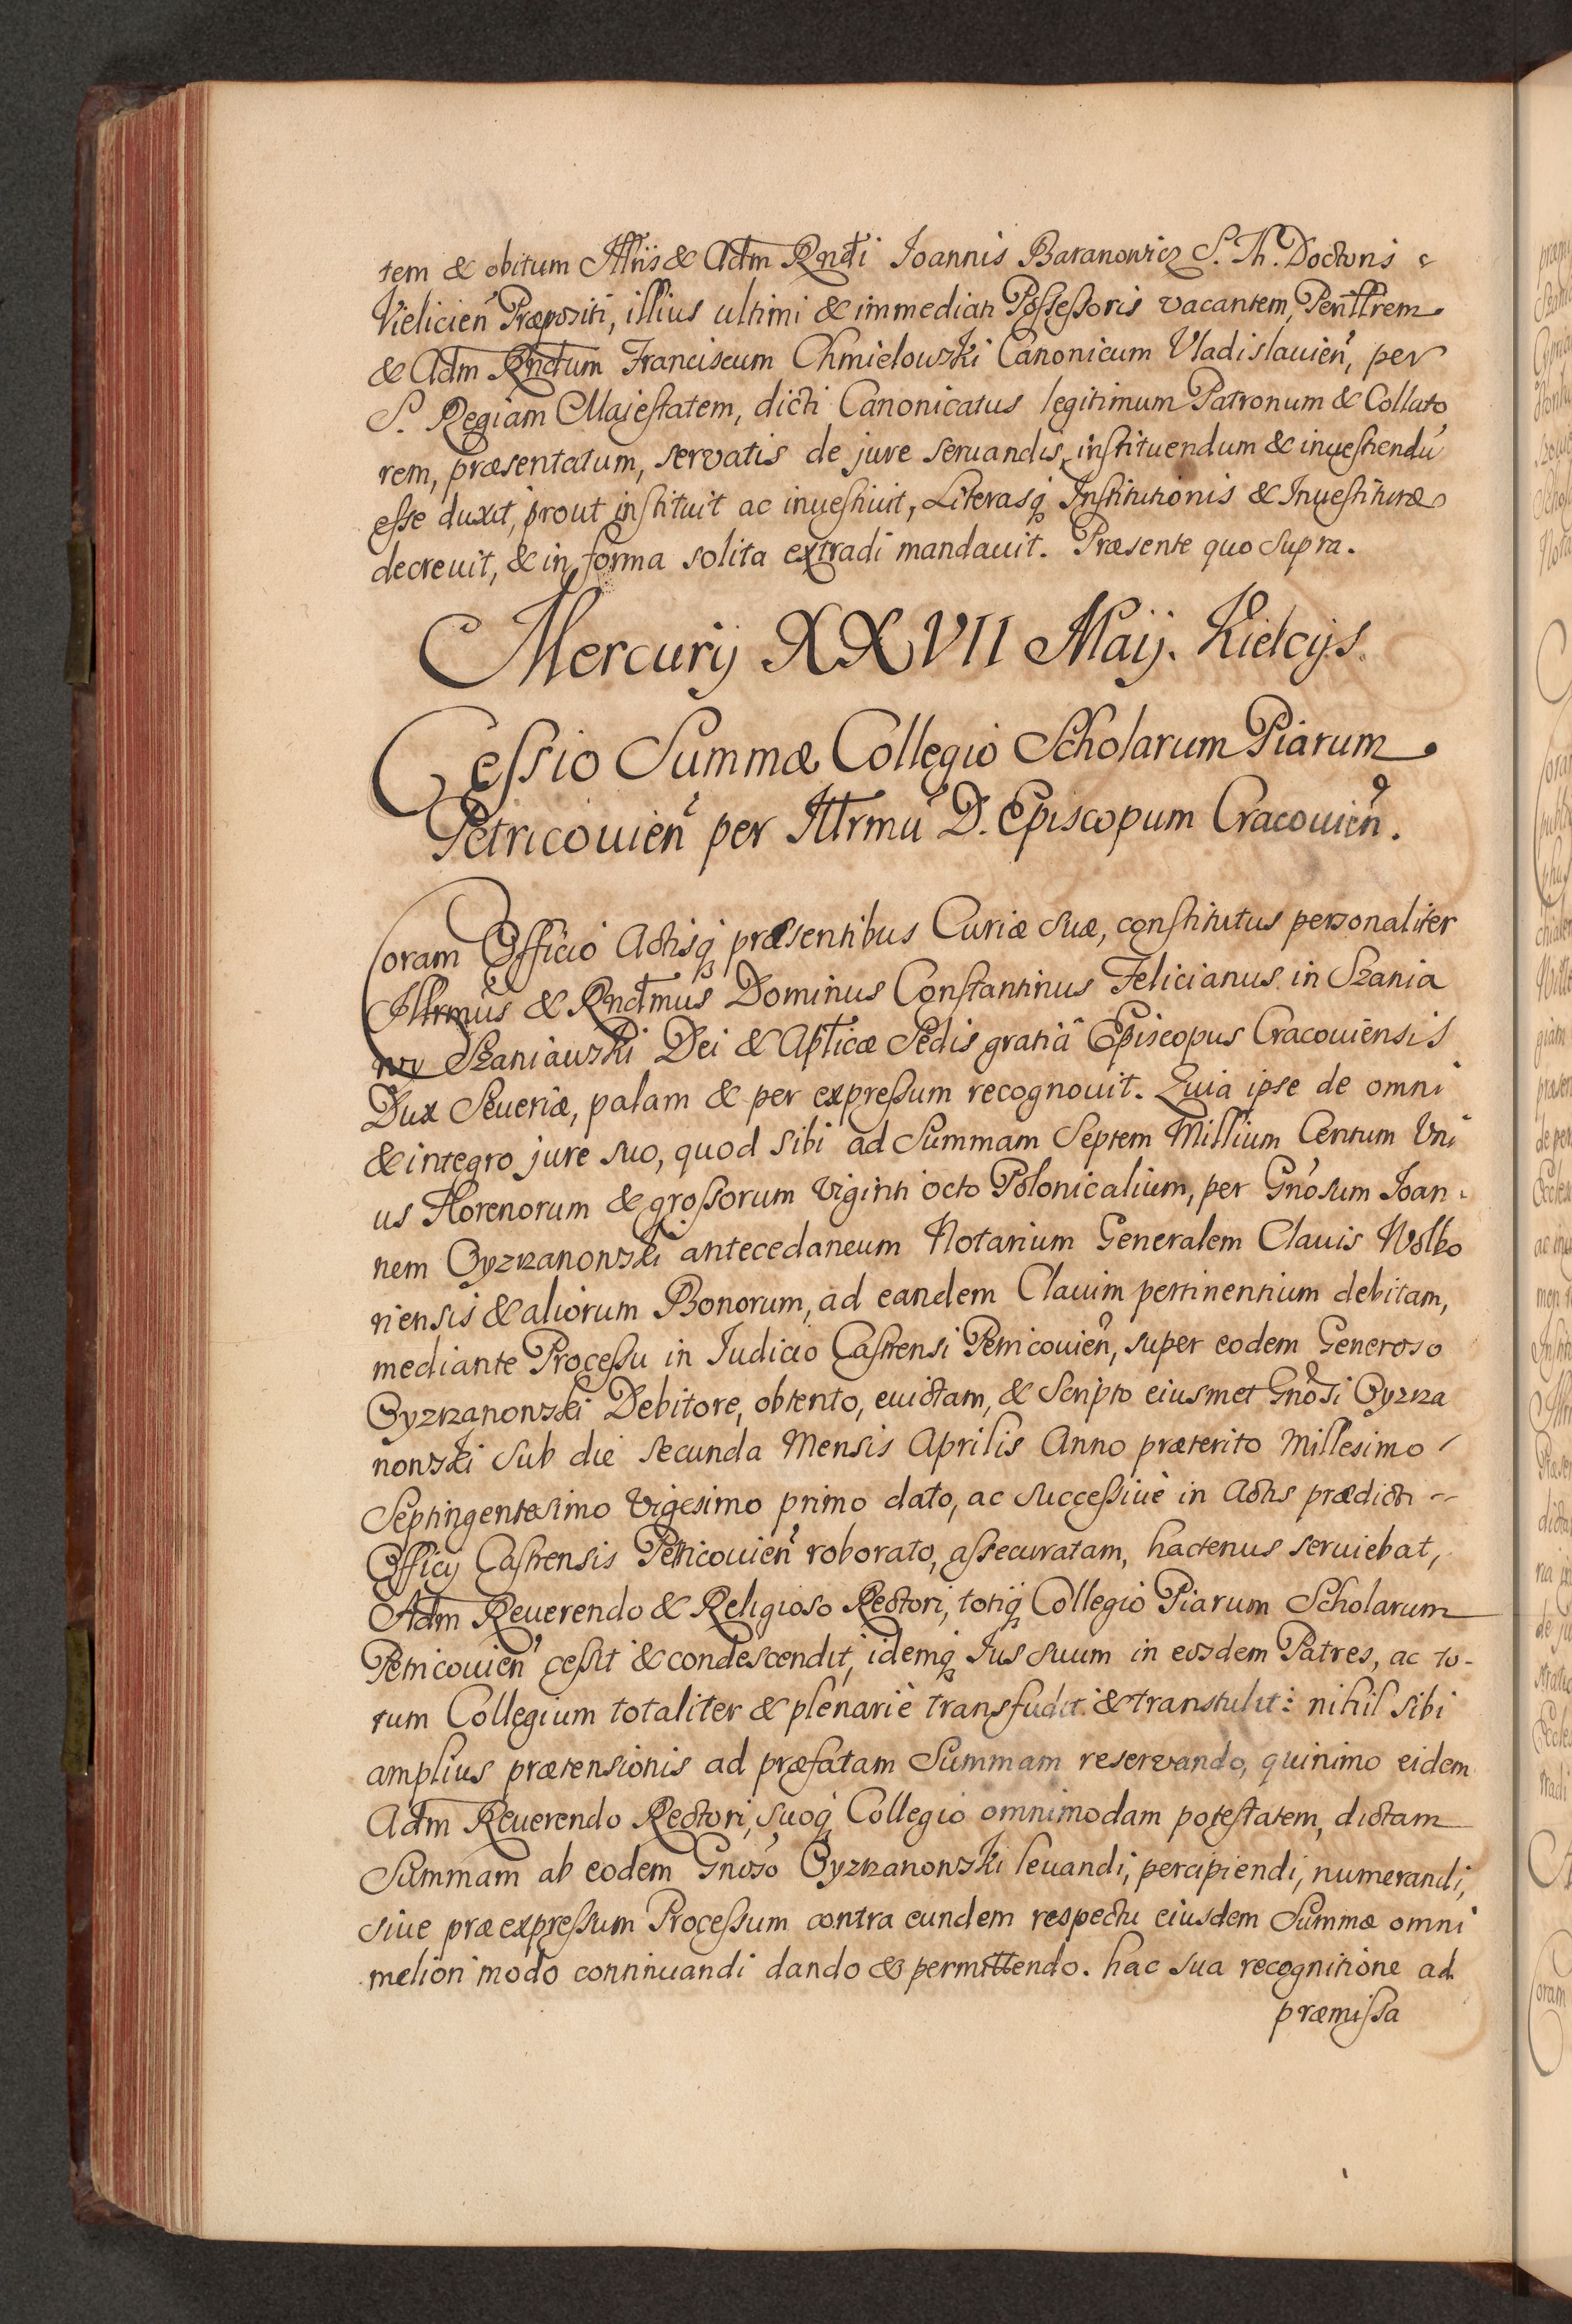 tem & obitum Illris & Adm Rndi Ioannis Baranowicz S. Th. Doctoris
Vielicien̄ Præpositi, illius ultimi & immediati Possessoris vacantem, Perillrem
& Adm Rndum Franciscum Chmielowski Canonicum Vladislauien̄, per
S. Regiam Majestatem, dicti Canonicatus legitimum Patronum & Collato
rem, præsentatum, servatis de jure seruandis, instituendum & inuestiendū
esse duxit, prout instituit ac inuestiuit, Literasq́ Institutionis & Inuestituræ
decreuit, & in forma solita extradi mandauit. Præsente quo supra.
Mercurij XXVII Maij. Kielcijs.
Cessio Summæ Collegio Scholarum Piarum
Petricouien̄ per Illrmū D. Episcopum Cracouien̄.
Coram Officio Actisq́ præsentibus Curiæ suæ, constitutus personaliter
Illrmus & Rndmus Dominus Constantinus Felicianus in Szania
wy Szaniawski Dei & Aplicæ Sedis gratiâ Episcopus Cracouiensis
Dux Seueriæ, palam & per expressum recognouit. Quia ipse de omni
& integro jure suo, quod sibi ad Summam Septem Millium Centum Vni
us Florenorum & grossorum viginti octo Polonicalium, per Gn̄osum Ioan-
nem Oyrzanowski antecedaneum Notarium Generalem Clauis Wolbo
riensis & aliorum Bonorum, ad eandem Clauim pertinentium debitam,
mediante Processu in Iudicio Castrensi Petricouien̄, super eodem Generoso
Oyrzanowski Debitore, obtento, euictam, & Scripto eiusmet Gn̄osi Oyrza
nowski sub die secunda Mensis Aprilis Anno præterito Millesimo
Septingentesimo Vigesimo primo dato, ac successiuè in Actis prædicti --
Officij Castrensis Petricouien̄ roborato, assecuratam, hactenus seruiebat,
Adm Reuerendo & Religioso Rectori, totiq́ Collegio Piarum Scholarum
Petricouien̄ cessit & condescendit, idemq́ Ius suum in eosdem Patres, ac to-
tum Collegium totaliter & plenariè transfudit & transtulit: nihil sibi
amplius prætensionis ad præfatam Summam reservando, quinimo eidem
Adm Reuerendo Rectori, suoq́ Collegio omnimodam potestatem, dictam
Summam ab eodem Gn̄oso Oyrzanowski leuandi, percipiendi, numerandi,
siue præexpressum Processum contra eundem respectu eiusdem Summæ omni
meliori modo continuandi dando & permittendo. hac sua recognitione ad
præmissa